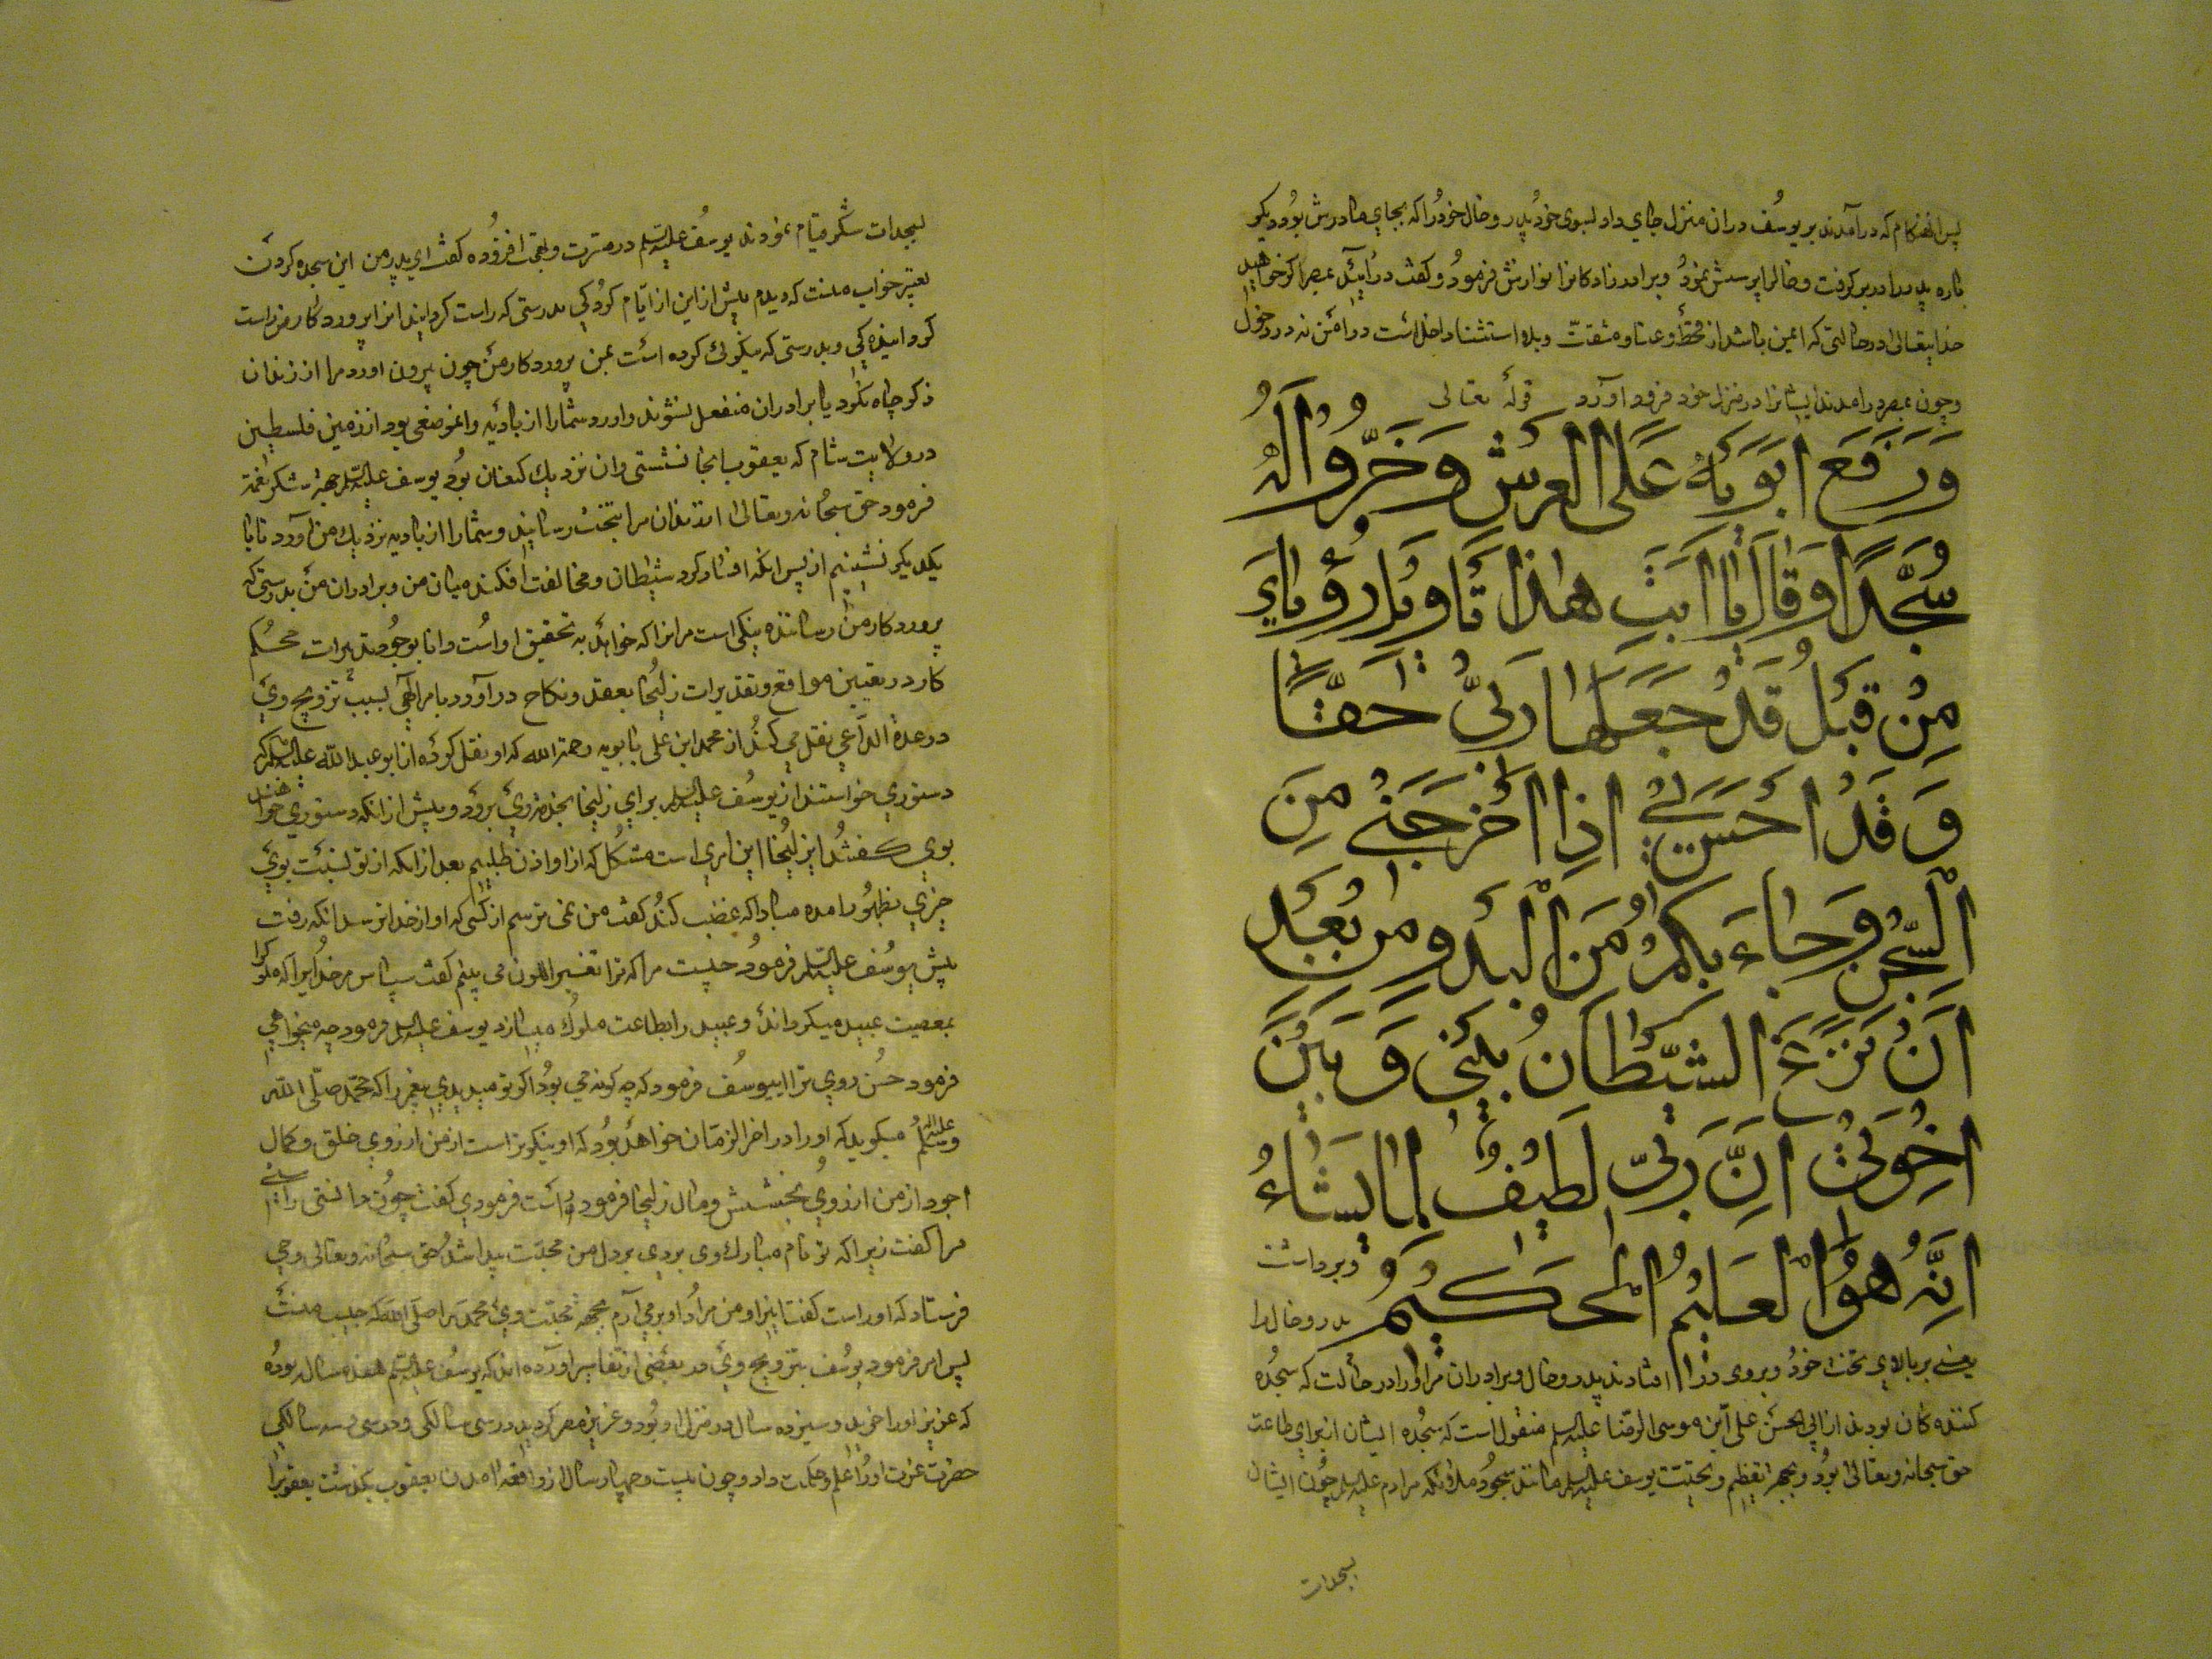 پس آنهنگام که درآمدند بر یوسُف در ان منزل جای داد بسوی خودُ پدر و خال خودُ را که بجای مادرش بُود و یکبر
کاره پدر را در بر کرفت و خاله را پرسش نمودُ و برادر زادکانرا نوازش فرمودُ و کفت در آیئد بمصر اکر خواهد
خدایتعالی در حالتی که ایمن باشید از قحط و عنا و مشقتّ و بدا استثنا داخل است در امن نه در دخول
و چون بمصر درامدند ایشانرا در منزل خود فرود آورد قوله تعالی
وَرَفَعَ اَبَوَیْهِ عَلَی العَرشِ وَخَرُّوُا لَهُ
سُجَّدًا وَقَالَ یٰا اَبَتِ هٰذَا تَأویلُ رُؤْیٰایَ
مِنْ قَبْلُ قَدْ جَعَلَهٰا رَبّی حَقّاً
وَ قَدْ اَحْسَنَ بی اِذا اَخْرَجَنی مِنَ
الْسِّجْنِ وَجٰاءَ بِکُمْ مِنَ الْبَدْوِ مِنْ بَعْدِ
اَنْ نَزَغَ الشَّیْطٰانُ بَیْنی وَ بَیْنَ
اِخْوَتی اِنَّ رَبّی لَطیفٌ لِمٰا یَشٰاءُ
اِنَّهُ هُوَ الْعَلیمُ الْحَکیمُ و برداشت
پدر و خال را
یعنی بر بالای تخت خودُ و بروی در افتادند پدر و خال و برادران مر او را در حالت که سجُده
کننده کان بودند از ابی الحسن علی ابن موسی الرّضا علیه السلم منقول است که سجُده ایشان از برای طاعت
حق سبحانه و تعالی بُود و بجهر تعظیم و تحیّت یوسف علیه السلم مانند سجُود ملائکه مر ادم علیه السلم چُون ایشان
بسجدات
بسجدات شکر قیام نمودند یوسُف علیه السلم در مسرّت و بهجت افزُوده کفت ای پدر من این سجده کردن
تعبیر خواب منست که دیدم پیش از این از ایّام کودُکی بدرستی که راست کردانید انرا پروردکار من راست
کردانیدنی و بدرستی که نیکوئی کرده است بمن پروردکار من چون بیرون اورد مرا از زندان
ذکر چاه نکرد با برادران منفعل نشوند و اورد شما را از بادیه و ان موضعی بود از زمین فلسطین
در ولایت شام که یعقوب بانجا نشستی و ان نزدیك کنعان بُود یوسف علیه السلم جهة شکر نعمة
فرمود حق سبحانه و تعالی از زندان مرا بتخت رسانید و شما را از بادیه نزدیك من آورد تا با
یکدیکر نشینیم از پس انکه افساد کرد شیطان و مخالفت افکند میان من و برادران من بدرستی که
پروردکار من رساننده نیکی است مر انرا که خواهد به تحقیق او است دانا بوجوُه تدبیرات محکُم
کار در تعیین مواقع و تقدیرات زلیُخا بعقد و نکاح در آورد با مر الهی بسبب تزویج وی
در عدة الدّاعی نقل می کند از محمد ابن علی بابویه رحمة الله که او نقل کرده از ابو عبد الله علیه السلم که
دستوری خواستند از یوسُف علیه السلم برای زلیخا بخدمت وی برود و پیش از انکه دستوری خواهند
بوی کفتند ای زلیُخا این امری است مشکل که از او اذن طلبیم بعد از انکه از تو نسبت بوی
چیزی بظهُور امده مبادا که غضب کندُ کفت من نمی ترسم از کسی که او از خدا ترسد انکه رفت
پیش یوسُف علیه السلم فرمودُ چیست مرا که ترا تغییر اللون می بینم کفت سپاس مر خدایرا که ملوک را
بمعصیت عبید میکرداند و عبید را بطاعت ملوك میسازد یوسف علیه السلم فرمود چه میخواهی
فرمود حسُن روی ترا ای یوسُف فرمود که چه کونه می بودُ اکر تو میدیدی پیغمبر را که محمّد صلّی الله
علیه و سلم میکویند که او را در اخر الزمّان خواهد بُود که او نیکوتر است از من از روی خلق و کمال
اجود از من از روی بخشش و مال زلیخا فرمود راست فرمودی کفت چوُن دانستی راستی
مرا کفت زیرا که تو نام مبارك وی بردی بر دل من محبّت پیدا شدُ حق سبحانه و تعالی وحی
فرستاد که او راست کفت ایزاو من مرادُ او بر می آرم بجهة محبّت وی محمّد را صلّی الله که حبیب منست
پس امر فرمود یوسُف بتزویج وی در بعضی از تفاسیر اورده اند که یوسُف علیه السلم هفده ساله بوُده
که عزیز او را خرید و سیزده سال در منزل او بُود و عزیز مصر کردید در سی سالکی و در سی و سه سالکی
حضرت عزت اوُرا علم و حکمت داد و چون بیست و چهار سال از واقعه امدن یعقوب بکذشت یعقوبرا